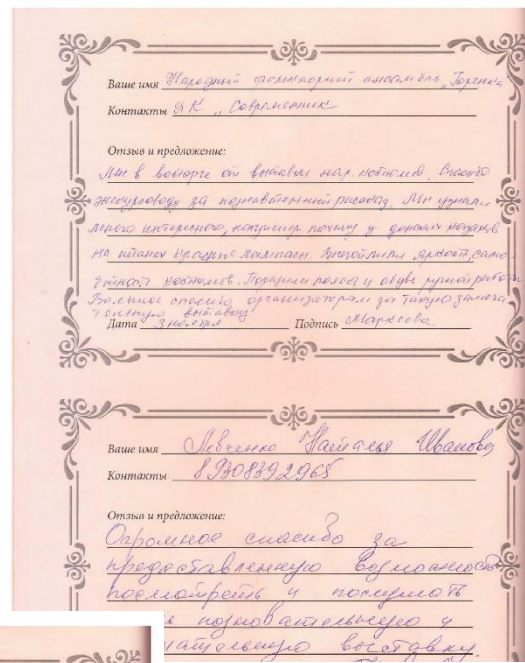 Ваше имя Народный фольклорный ансамбль "Горенка"
Контакты ДК "Современник"
Отзыв и предложение:
Мы в восторге от выставки нар. костюмов. Спасибо
экскурсоводу за познавательный рассказ. Мы узнали
много интересного, например почему у донских казаков
на штанах красные лампасы. яркость, само-
бытность костюмов. Поразили пояса и обувь ручной работы
Большое спасибо организаторам за такую замеча
тельную выставку
Дата 3 ноября Подпись
Ваше имя Левченко Наталья Ивановна
Контакты 89308392965
Отзыв и предложение:
Огромное спасибо за
предоставленную возможность
посмотреть и послушать
познавательную и
выставку.